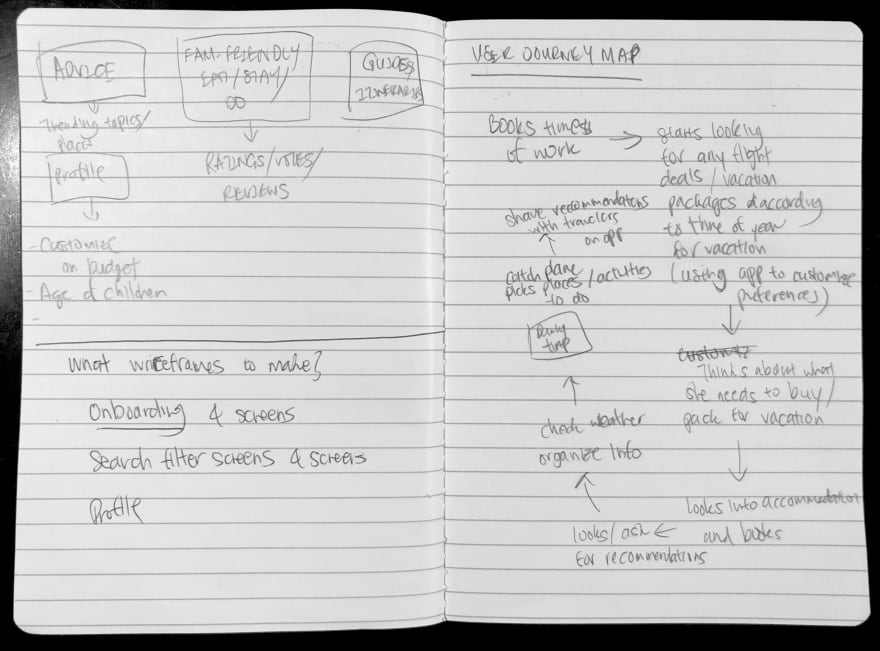 ADVICE
Trending topics/
places
Profile
- Customize
on budget
- Age of children
-
FAM-FRIENDLY
EAT/STAY/
DO
RATINGS/VOTES/
REVIEWS
GUIDES
ITINERARIES
What wireframes to make?
Onboarding 4 screens
Search filter screens 4 screens
Profile
USER JOURNEY MAP
Books times
of work
starts looking
for any flight
deals/vacation
packages according
to time of year
for vacation
(using app to customize
preferences)
Thinks about what
she needs to buy/
pack for vacation
Looks into accommodation
and books
looks/ask
for recommendations
check weather
organize info
During
trip
catch plane
picks places/activities
to do
share recommendations
with travelers
on app